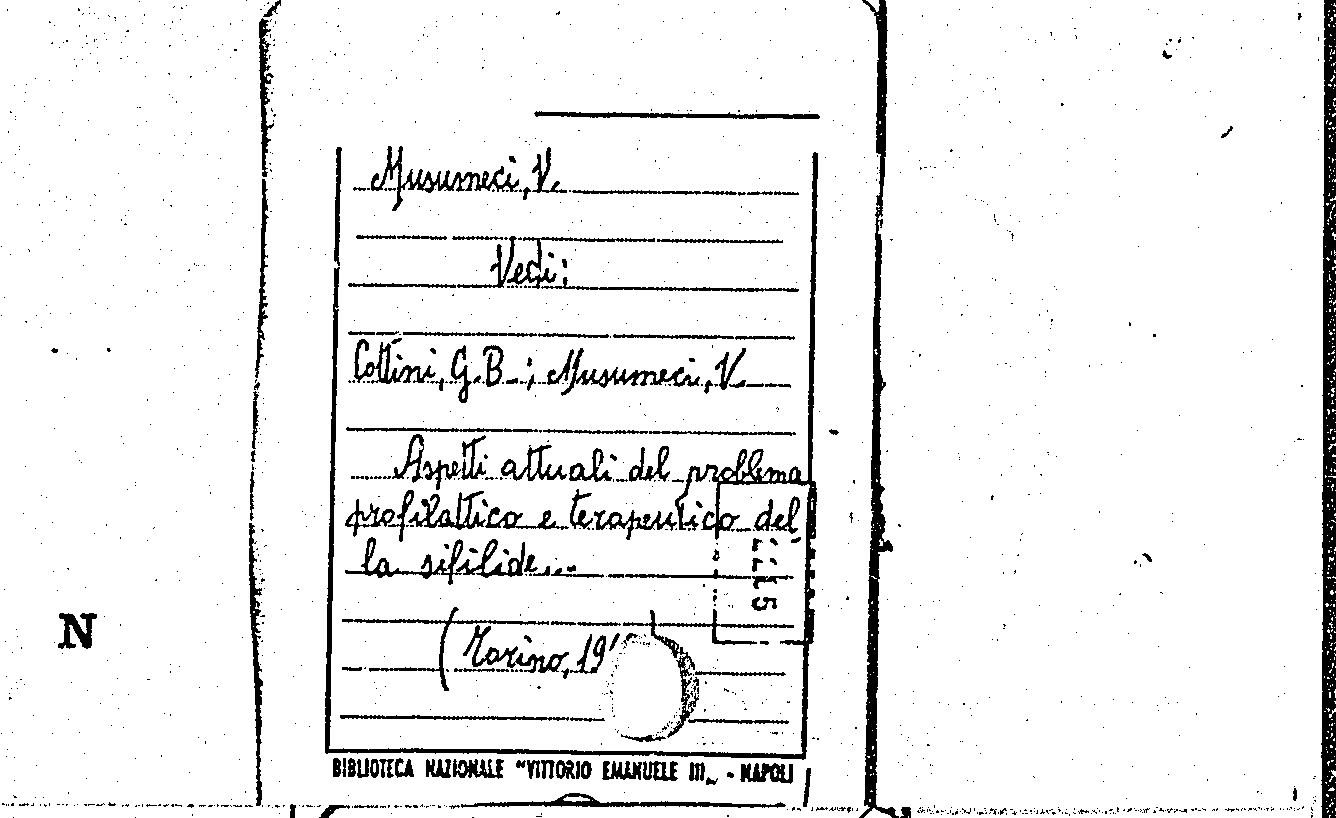 Musumeci, V.
Vedi:
Cottini, G.B.; Musumeci, V.
Aspetti attuali del problema
profilattico e terapeutico del
la sifilide...
(Torino, 19
N
BIBLIOTECA NAZIONALE "VITTORIO EMANUELE III„ - NAPOLI